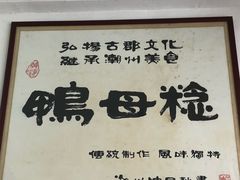 弘揚古郡文化
継承潮州美食
鴨母稔
傳統制作 風味獨特